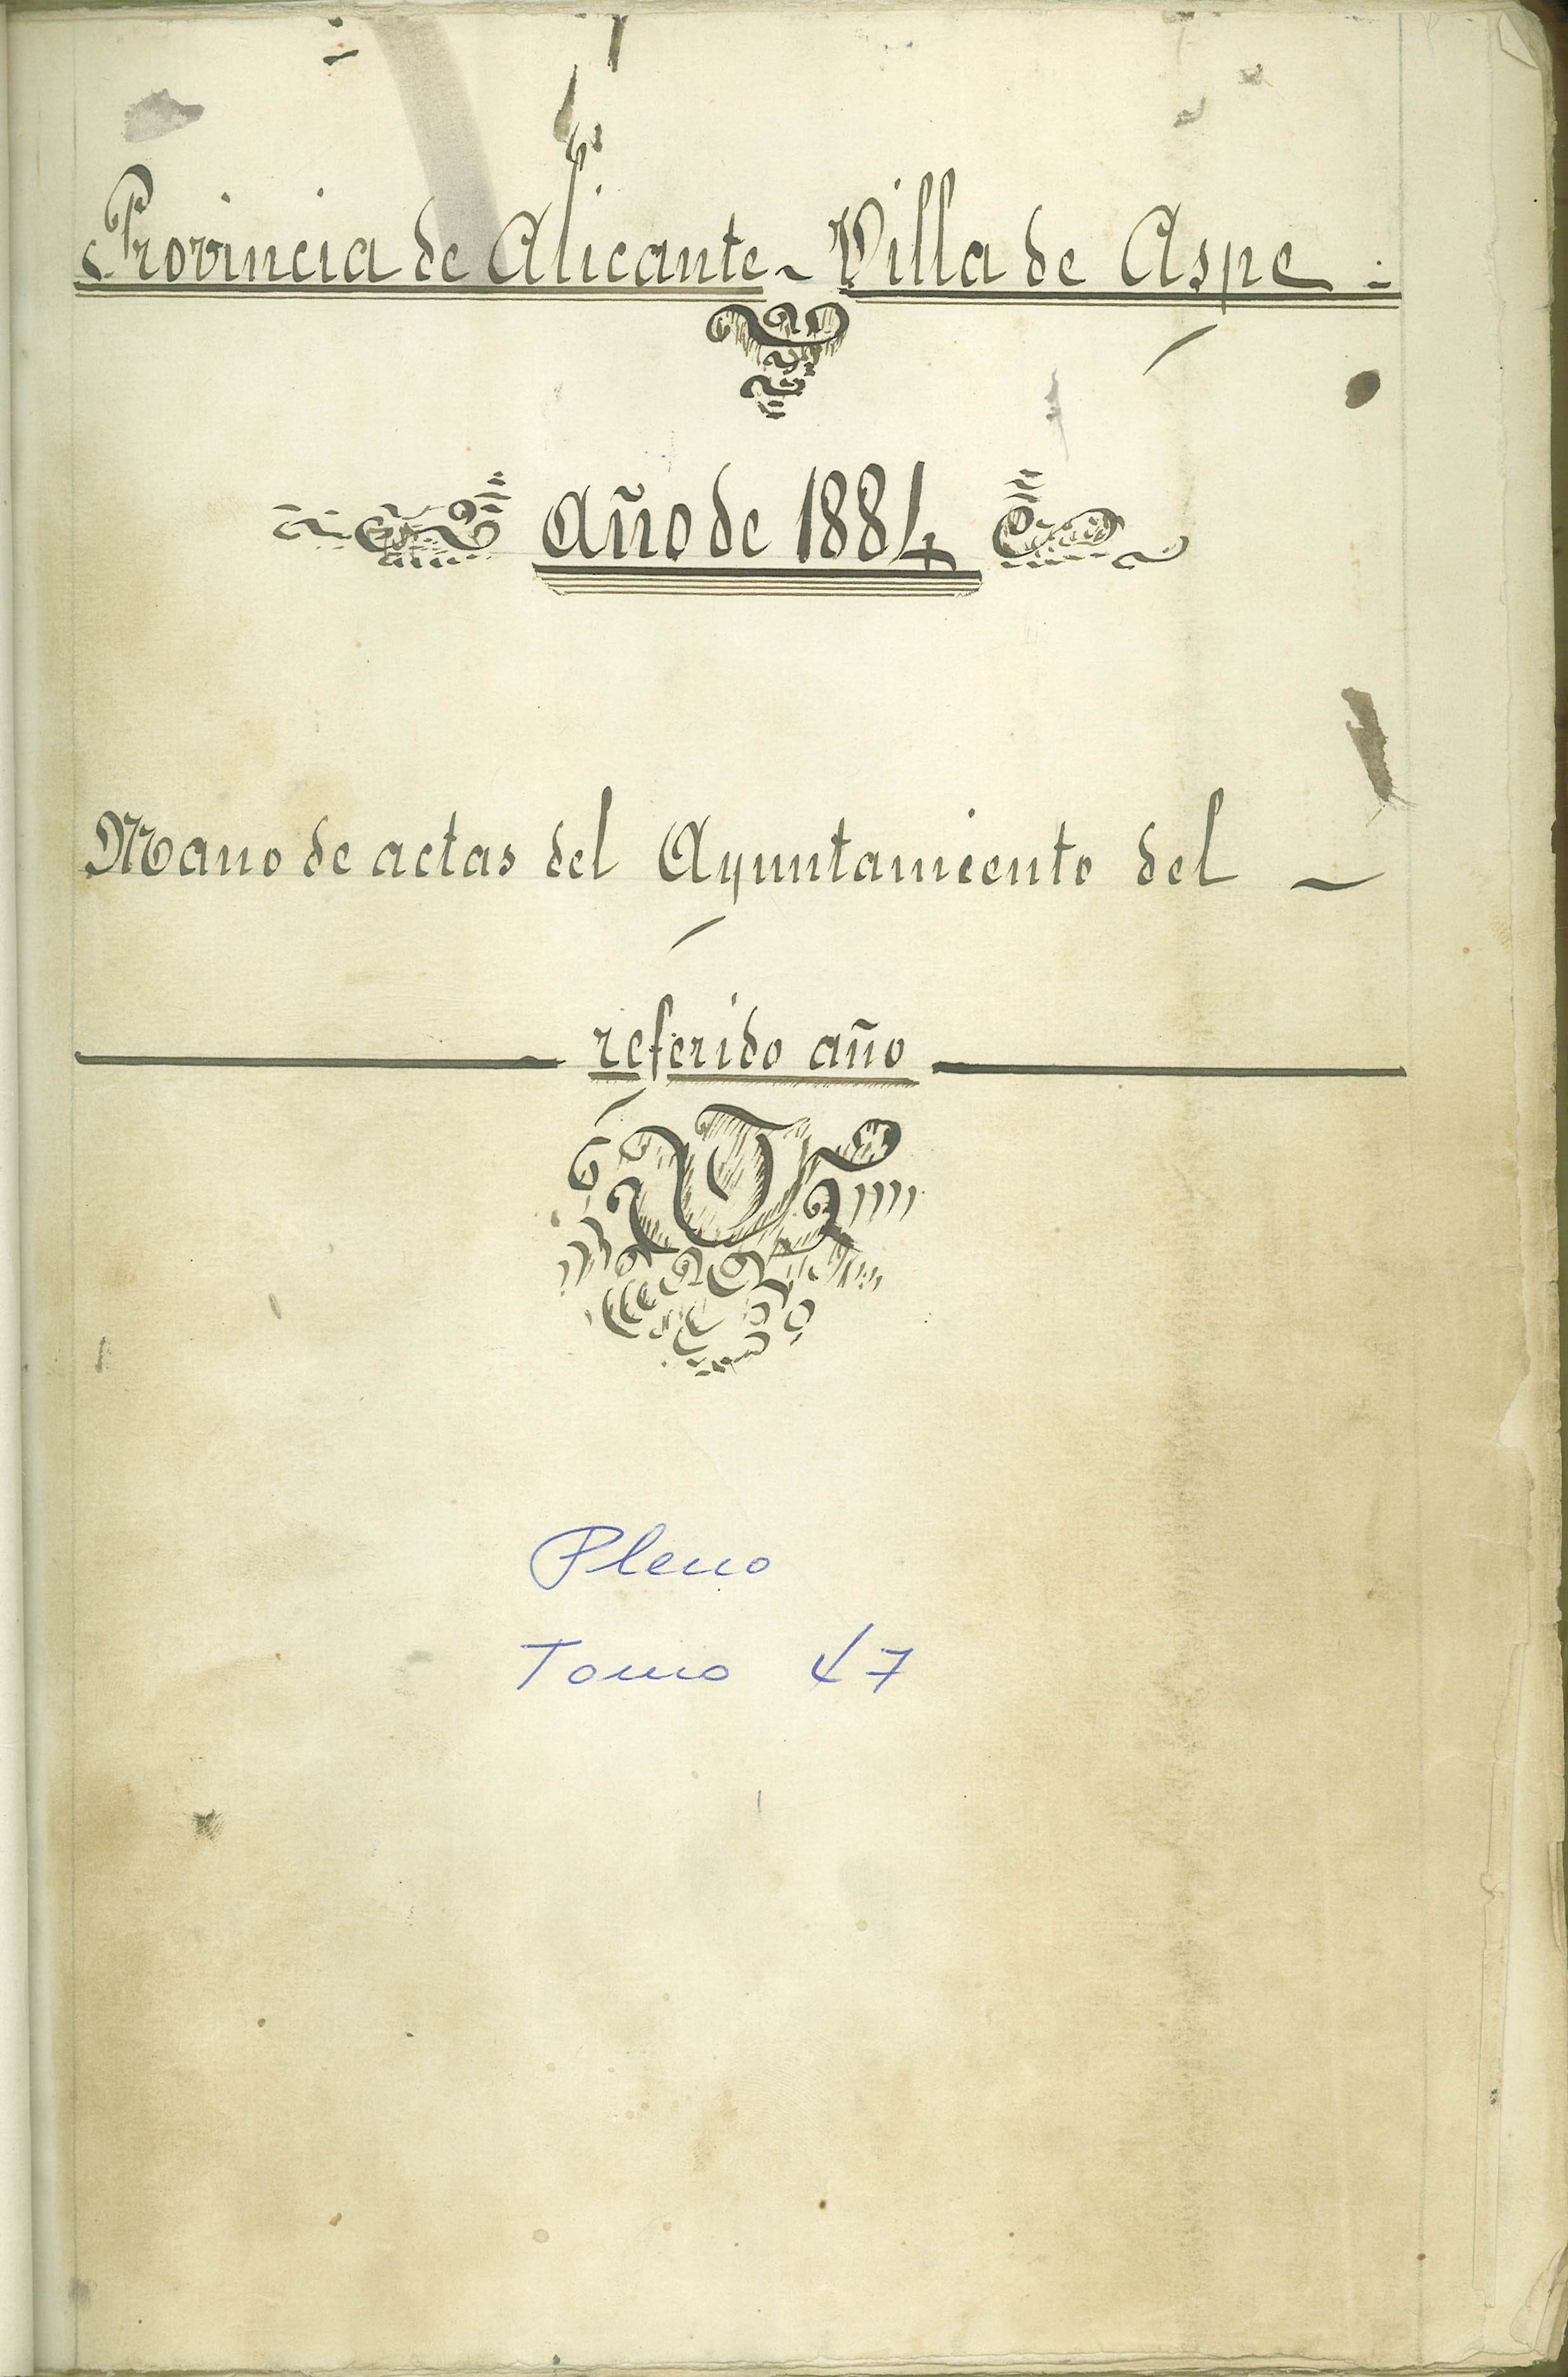 Provincia de Alicante ~ Villa de Aspe.
Año de 1884
Mano de actas del Ayuntamiento del ~
referido año
Pleno
Tomo 47